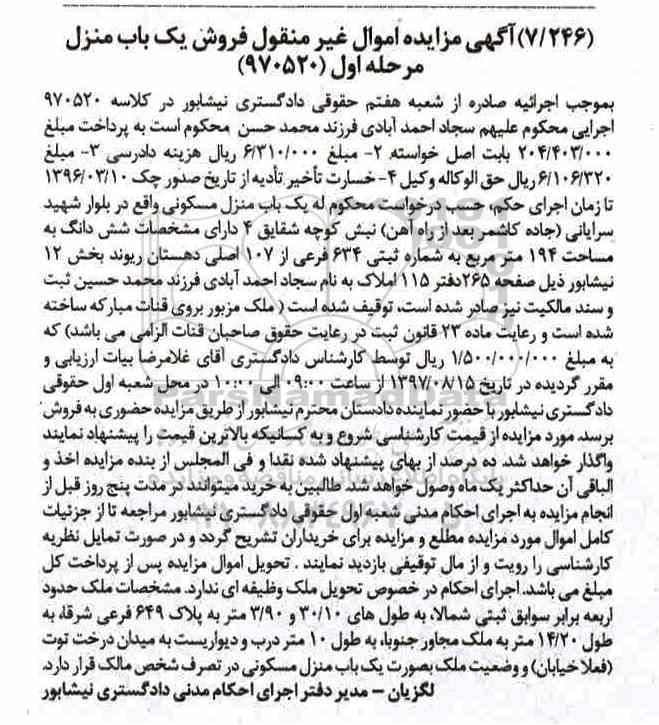 (۷/۲۴۶) آگهی مزایده اموال غیر منقول فروش یک باب منزل
مرحله اول (۹۷۰۵۲۰)
بموجب اجرائیه صادره از شعبه هفتم حقوقی دادگستری نیشابور در کلاسه ۹۷۰۵۲۰
اجرایی محکوم علیهم سجاد احمد آبادی فرزند محمد حسن محکوم است به پرداخت مبلغ
۲۰۴/۴۰۳/۰۰۰ بابت اصل خواسته. ۲- مبلغ ۶/۳۱۰/۰۰۰ ریال هزینه دادرسی ۳- مبلغ
۶/۱۰۶/۳۲۰ ریال حق الوکاله وکیل ۴- خسارت تأخیر تأدیه از تاریخ صدور چک ۱۳۹۶/۰۳/۱۰
تا زمان اجرای حکم، حسب درخواست محکوم له یک باب منزل مسکونی واقع در بلوار شهید
سرایانی (جاده کاشمر بعد از راه آهن) نبش کوچه شقایق ۴ دارای مشخصات شش دانگ به
مساحت ۱۹۴ متر مربع به شماره ثبتی ۶۳۴ فرعی از ۱۰۷ اصلی دهستان ریوند بخش ۱۲
نیشابور ذیل صفحه ۲۶۵دفتر ۱۱۵ املاک به نام سجاد احمد آبادی فرزند محمد حسین ثبت
و سند مالکیت نیز صادر شده است، توقیف شده است ( ملک مزبور بروی قنات مبارکه ساخته
شده است و رعایت ماده ۲۳ قانون ثبت در رعایت حقوق صاحبان قنات الزامی می باشد) که
به مبلغ ۱/۵۰۰/۰۰۰/۰۰۰ ریال توسط کارشناس دادگستری آقای غلامرضا بیات ارزیابی و
مقرر گردیده در تاریخ ۱۳۹۷/۰۸/۱۵ از ساعت ۰۹:۰۰ الی ۱۰:۰۰ در محل شعبه اول حقوقی
دادگستری نیشابور با حضور نماینده دادستان محترم نیشابور از طریق مزایده حضوری به فروش
برسد. مورد مزایده از قیمت کارشناسی شروع و به کسانیکه بالاترین قیمت را پیشنهاد نمایند
واگذار خواهد شد. ده درصد از بهای پیشنهاد شده نقدا و فی المجلس از بنده مزایده اخذ و
الباقی آن حداکثر یک ماه وصول خواهد شد. طالبین به خرید میتوانند در مدت پنج روز قبل از
انجام مزایده به اجرای احکام مدنی شعبه اول حقوقی دادگستری نیشابور مراجعه تا از جزئیات
کامل اموال مورد مزایده مطلع و مزایده برای خریداران تشریح گردد و در صورت تمایل نظریه
کارشناسی را رویت و از مال توقیفی بازدید نمایند . تحویل اموال مزایده پس از پرداخت کل
مبلغ می باشد. اجرای احکام در خصوص تحویل ملک وظیفه ای ندارد. مشخصات ملک حدود
اربعه برابر سوابق ثبتی شمالا، به طول های ۳۰/۱۰ و ۳/۹۰ متر به پلاک ۶۴۹ فرعی شرقا، به
طول ۱۴/۲۰ متر به ملک مجاور جنوبا، به طول ۱۰ متر درب و دیواریست به میدان درخت توت
(فعلا خیابان) و وضعیت ملک بصورت یک باب منزل مسکونی در تصرف شخص مالک قرار دارد.
لگزیان - مدیر دفتر اجرای احکام مدنی دادگستری نیشابور
ParsNamadData